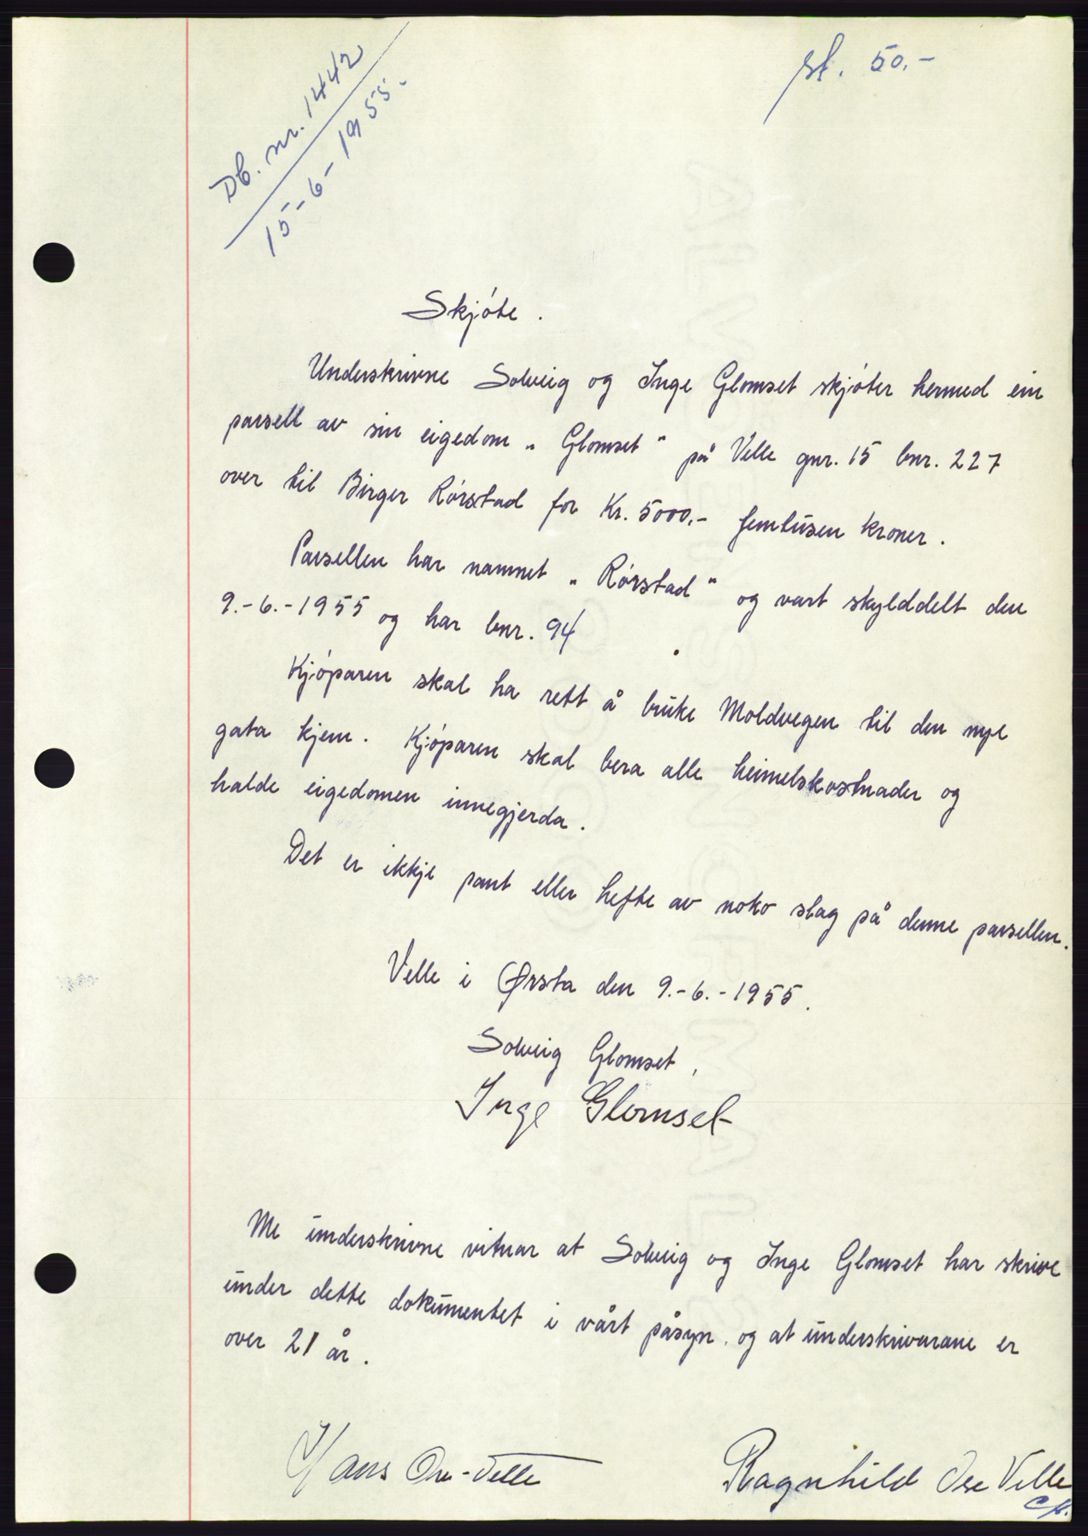 Db. nr. 1442
15-6-1955.
st. 50.-
Skjóte.
Underskrivne Solveig og Inge Glomset skjóter hermed ein
parsell av sin eigedom „Glomset" på Velle gnr. 15 bnr. 227
over til Birger Rórstad for Kr. 5000.- femtusen kroner.
Parsellen har namnet „Rórstad" og vart skylddelt den
9.-6.-1955 og har bnr. 94
Kjóparen skal ha rett å bruke Moldvegen til den nye
gata kjem. Kjóparen skal bera alle heimelskostnader og
halde eigedomen innegjerda.
Det er ikkje pant eller hefte av noko slag på denne parsellen.
Velle i Ørsta den 9.-6.-1955.
Solveig Glomset,
Inge Glomset
Me underskrivne vitnar at Solveig og Inge Glomset har skrive
under dette dokumentet i vårt påsyn. og at underskrivarane er
over 21 år.
Hans Ose-Velle
Ragnhild Ose Velle